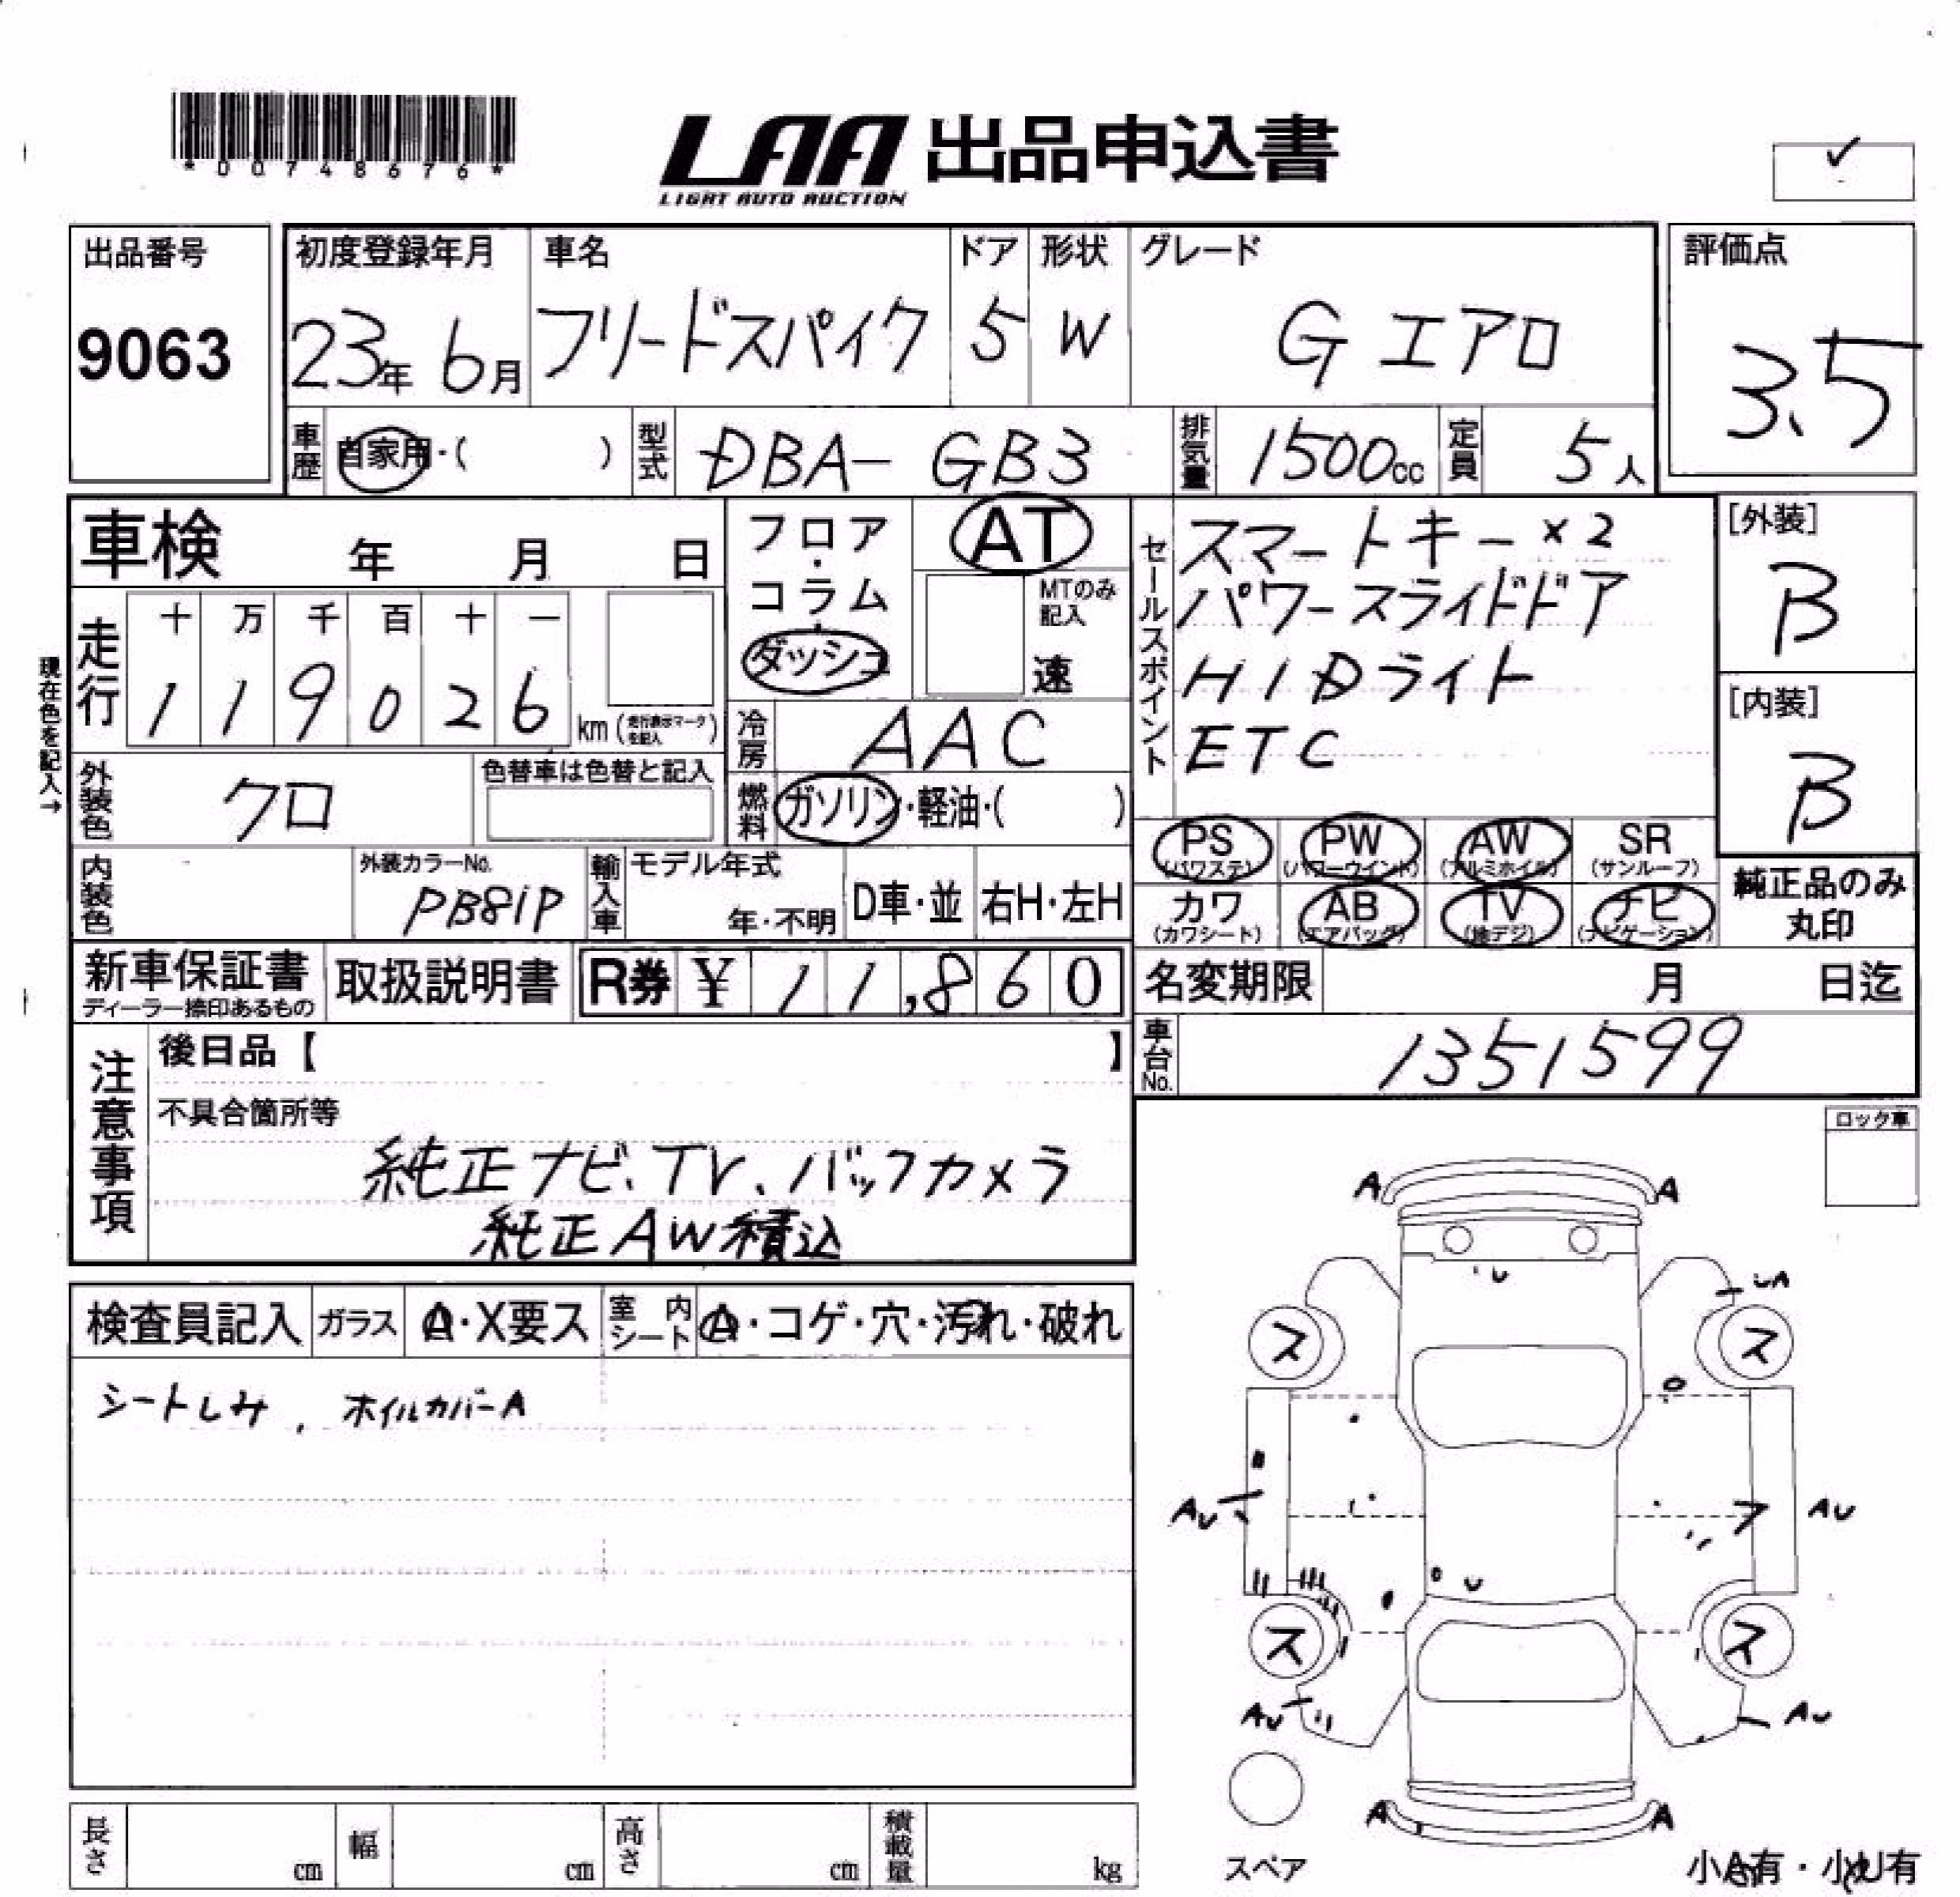 *00748676*
LAA 出品申込書
LIGHT AUTO AUCTION
✓
出品番号
9063
初度登録年月
23年 6月
車名
フリードスパイク
ドア
5
形状
W
グレード
G エアロ
評価点
3.5
車歴 自家用・( )
型式 DBA- GB3
排気量 1500cc
定員 5人
車検 年 月 日
フロア・コラム・ダッシュ
AT
MTのみ記入
速
セールスポイント
スマートキー ×2
パワースライドドア
HIDライト
ETC
[外装]
B
[内装]
B
現在色を記入→
走行
十 万 千 百 十 一
1 1 9 0 2 6 km (走行表示マークを記入)
冷房 AAC
外装色 クロ
色替車は色替と記入
燃料 ガソリン・軽油・( )
PS (パワステ)
PW (パワーウインド)
AW (アルミホイル)
SR (サンルーフ)
カワ (カワシート)
AB (エアバッグ)
TV (地デジ)
ナビ (ナビゲーション)
純正品のみ丸印
内装色
外装カラーNo.
PB81P
輸入車 モデル年式
年・不明
D車・並
右H・左H
新車保証書
ディーラー捺印あるもの
取扱説明書
R券 ¥ 11,860
名変期限 月 日迄
車台No. 1351599
注意事項
後日品【 】
不具合箇所等
純正ナビ、TV、バックカメラ
純正AW積込
ロック車
検査員記入
ガラス A・X要ス
室内シート A・コゲ・穴・汚れ・破れ
シートしみ , ホイルカバーA
A A
U
UA
ス ス
AU AU
U
ス ス
AU AU
A A
スペア
小A有・小U有
長さ cm
幅 cm
高さ cm
積載量 kg